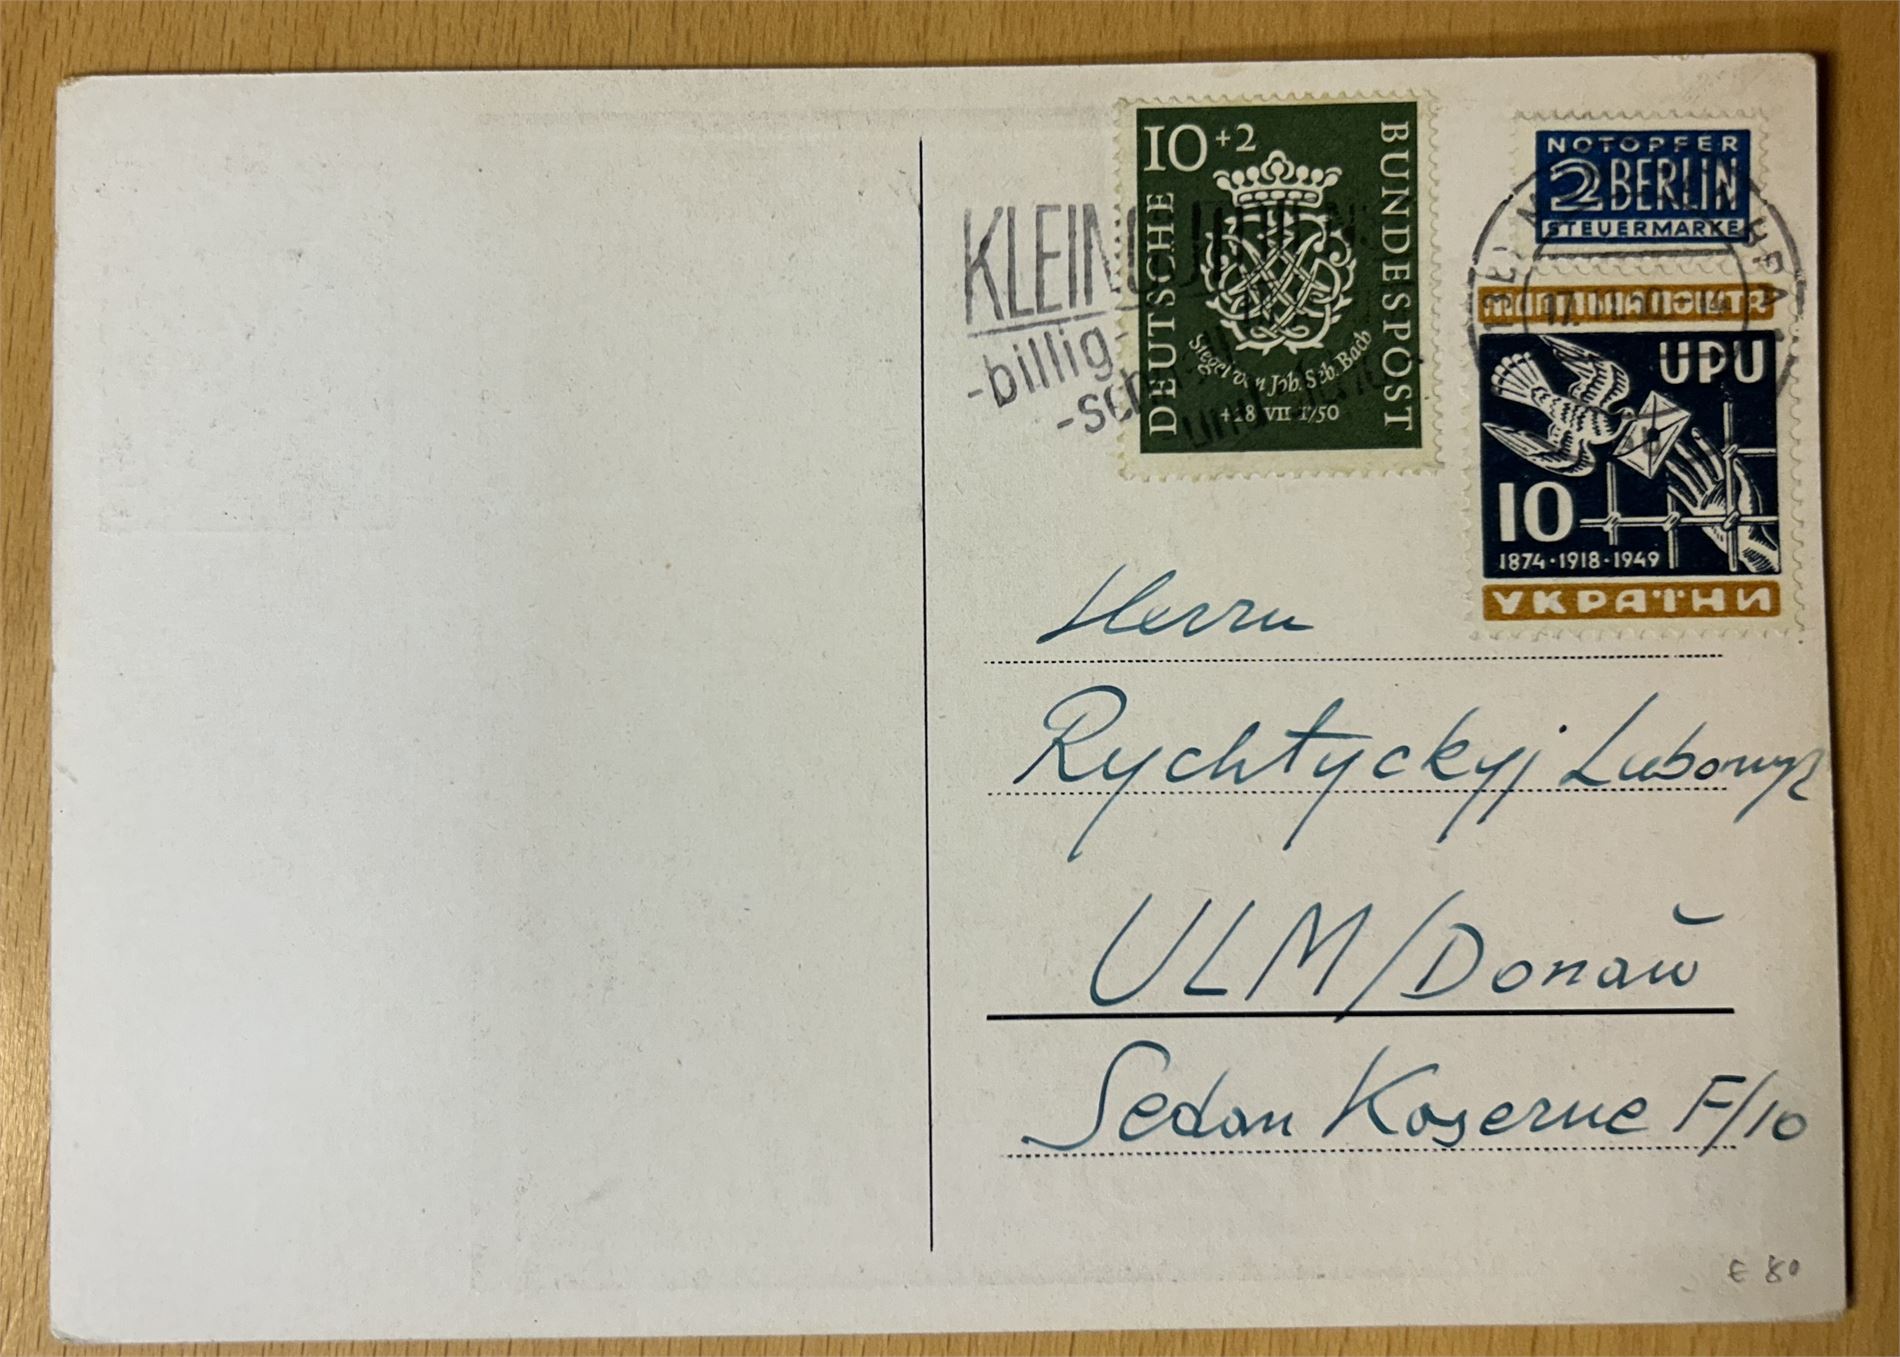 10+2
DEUTSCHE
BUNDESPOST
Siegel von Joh. Seb. Bach
+28 VII 1750
NOTOPFER
2 BERLIN
STEUERMARKE
UPU
10
1874·1918·1949
УКРАЇНИ
-billig-
Herrn
Rychtyckyj Lubomyr
ULM/Donaŭ
Sedan Kaserne F/10
€ 80